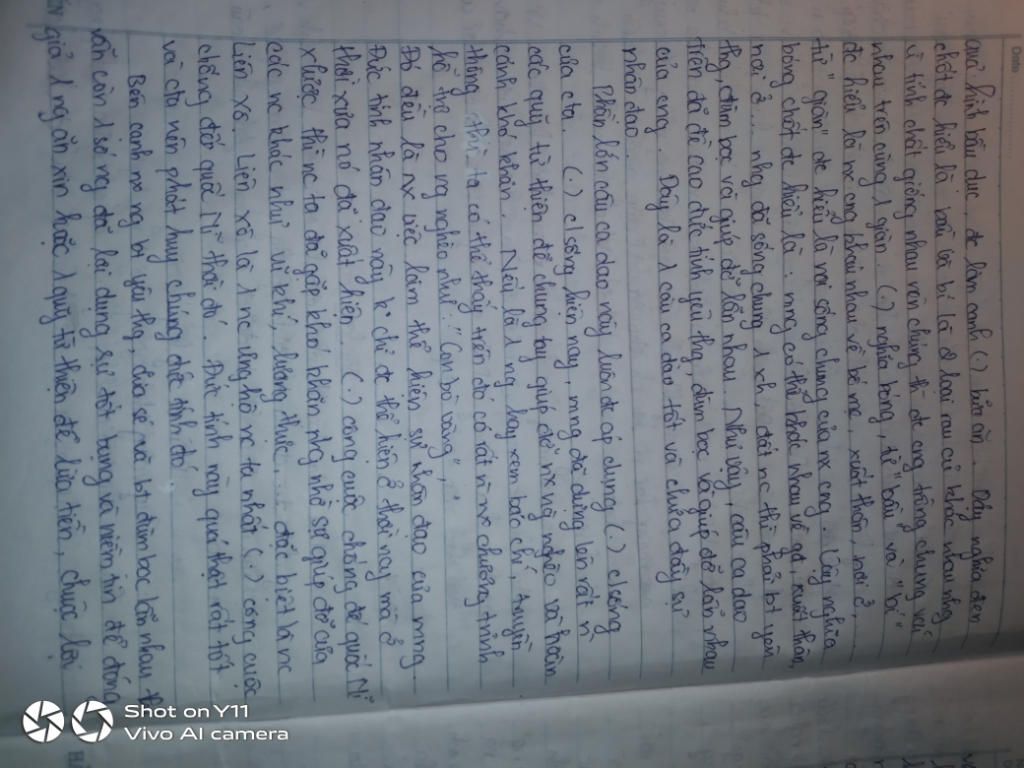 Date
quả hình bầu dục đc làm canh (.) bữa ăn. Đấy nghĩa đen
chốt đc hiểu là bầu bí là 2 loại rau củ khác nhau nhg
vì tính chất giống nhau nên chúng th đc cng trồng chung với
nhau trên cùng 1 giàn. (.) nghĩa bóng, từ "bầu và "bí"
đc hiểu là nx cng khác nhau về bố mẹ, xuất thân, nơi ở,
từ "giàn" đc hiểu là nơi sống chung của nx cng. Lấy nghĩa
bóng chốt đc hiểu là: mng có thể khác nhau về gđ, xuất thân,
nơi ở... nhg đã sống chung 1 xh, đất nc thì phải bt yêu
thg, đùm bọc và giúp đỡ lẫn nhau. Như vậy, câu ca dao
trên đã đề cao đức tính yêu thg, đùm bọc và giúp đỡ lẫn nhau
của cng. Đây là 1 câu ca dao tốt và chứa đầy sự
nhân đạo.
Phần lớn câu ca dao này luôn đc áp dụng (.) c/sống
của cta. (.) c/sống hiện nay, mng đã dựng lên rất n
các quỹ từ thiện để chung tay giúp đỡ nx ng nghèo và hoàn
cảnh khó khăn. Nếu là 1 ng hay xem báo chí, truyền
thông thì ta có thể thấy trên đó có rất n` chương trình
hỗ trợ cho ng nghèo như: "Con bò vàng",
Đó đều là nx việc làm thể hiện sự nhân đạo của mng.
Đức tính nhân đạo này k chỉ đc thể hiện ở thời nay mà ở
thời xưa nó đã xuất hiện. (.) công cuộc chống đế quốc Mĩ
x/lược thì nc ta đã gặp khó khăn nhg nhờ sự giúp đỡ của
các nc khác như vũ khí, lương thực,... đặc biệt là nc
Liên xô. Liên xô là 1 nc ủng hộ nc ta nhất (.) công cuộc
chống đế quốc Mĩ thời đó. Đức tính này quả thật rất tốt
và cta nên phát huy chúng đức tính đó
Bên cạnh nx ng bt yêu thg, chia sẻ và bt đùm bọc lẫn nhau thì
vẫn còn 1 số ng đã lợi dụng sự tốt bụng và niềm tin để đóng
giả 1 ng ăn xin hoặc 1 quỹ từ thiện để lừa tiền, chuộc lợi
Shot on Y11
Vivo AI camera